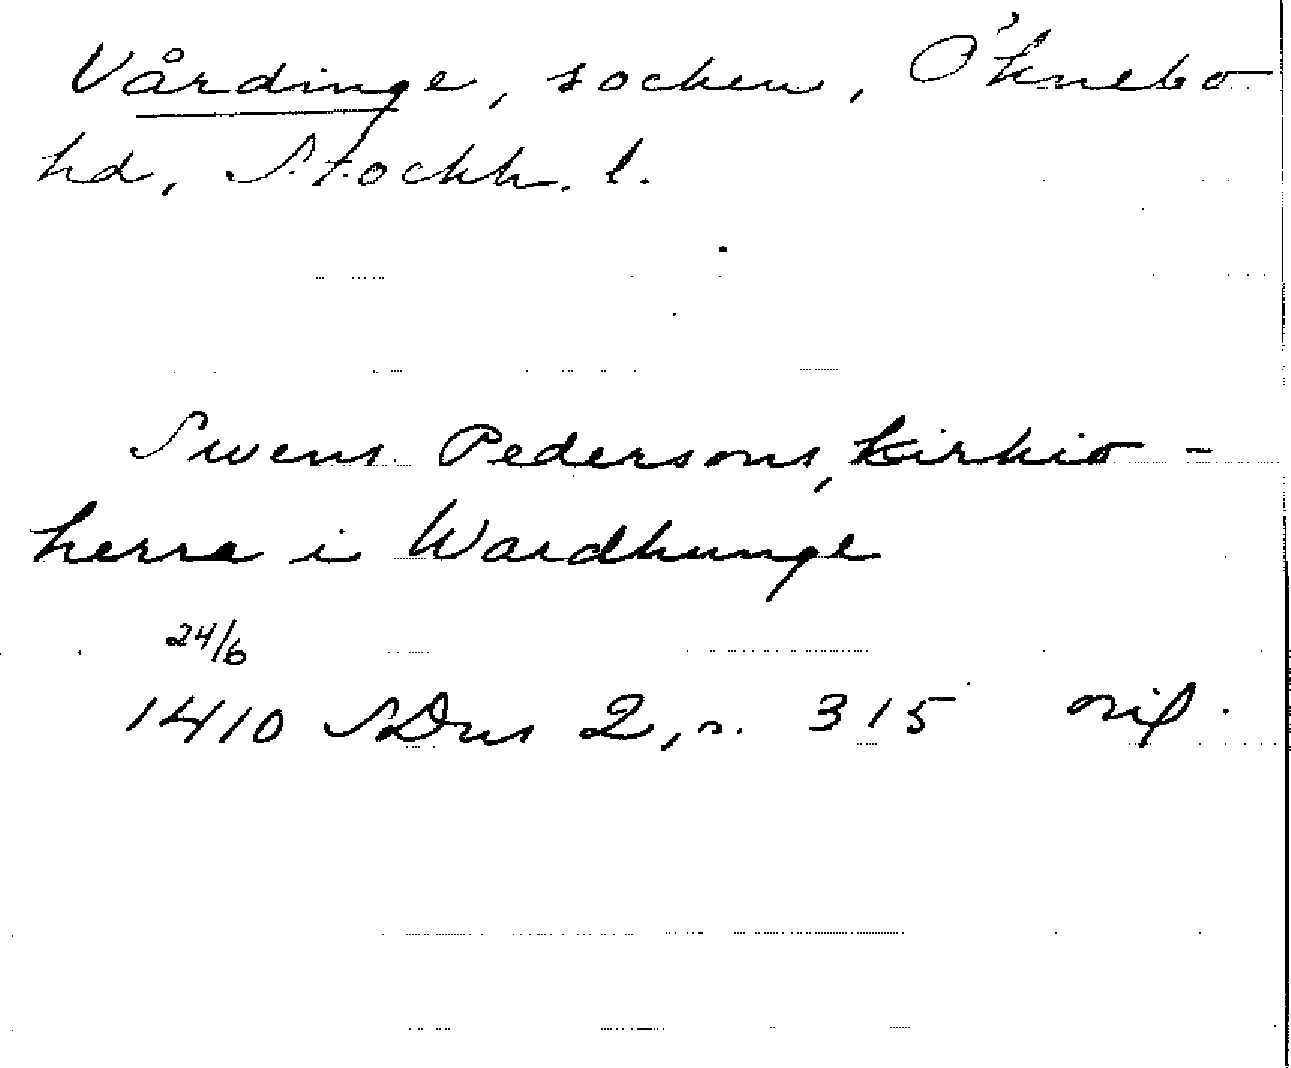 Vårdinge, socken, Öknebo
hd, Stockh. l.
Swens Pedersons, kirkio-
herra i Wardhunge
24/6
1410 SDns 2, n. 315 orig.